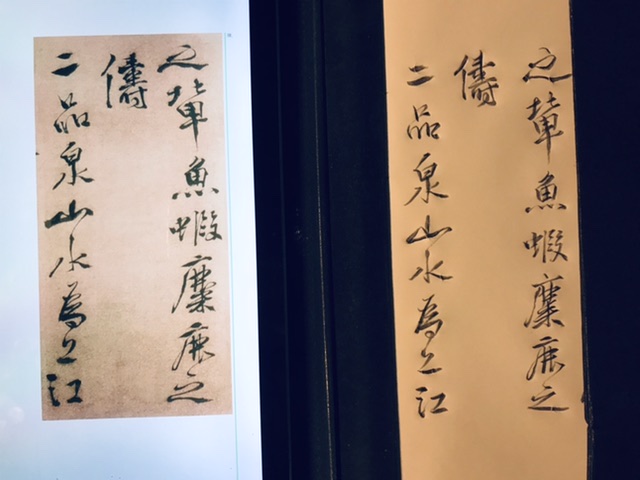 之輩魚蝦麋鹿之
儔
二品泉山水為上江
之輩魚蝦麋鹿之
儔
二品泉山水為上江